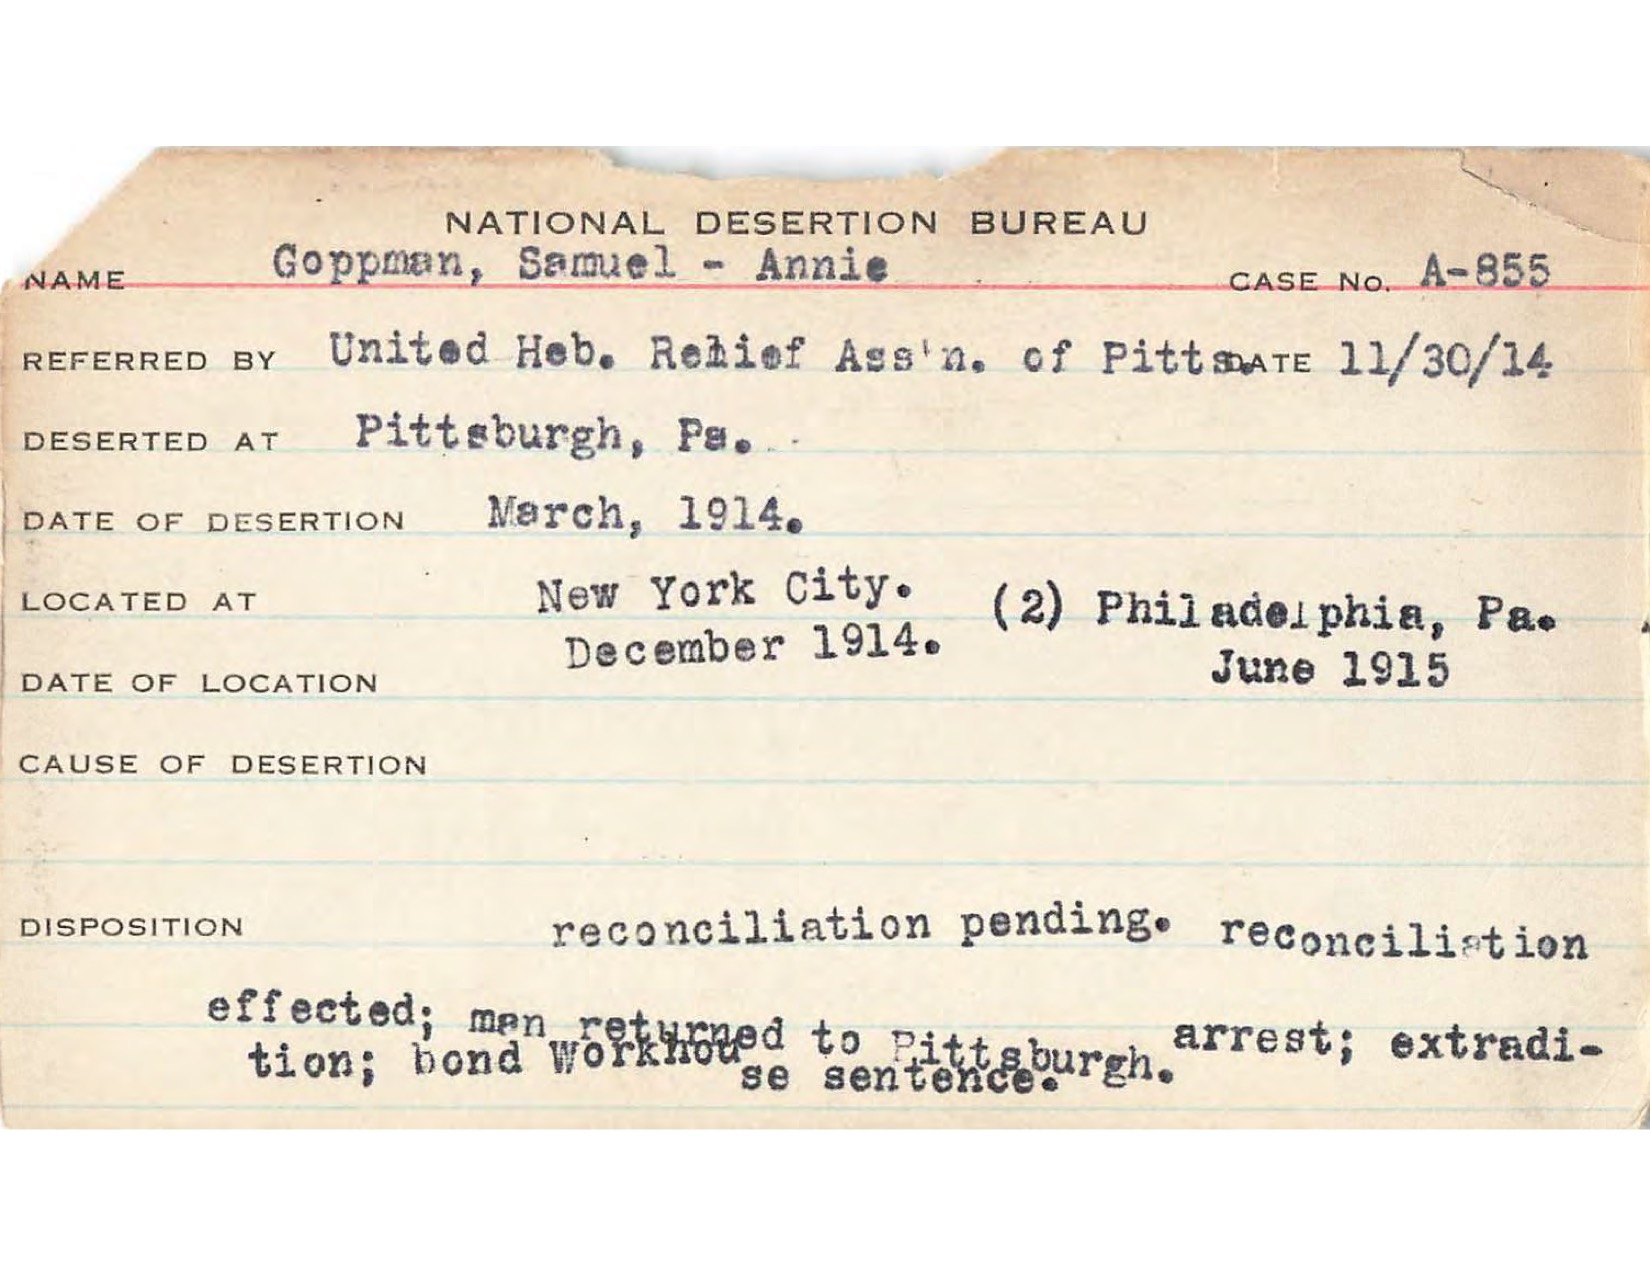 NATIONAL DESERTION BUREAU
NAME Goppman, Samuel - Annie CASE No. A-855
REFERRED BY United Heb. Relief Ass'n. of Pitts. DATE 11/30/14
DESERTED AT Pittsburgh, Pa.
DATE OF DESERTION March, 1914.
LOCATED AT New York City. (2) Philadelphia, Pa.
DATE OF LOCATION December 1914. June 1915
CAUSE OF DESERTION
DISPOSITION reconciliation pending. reconciliation
effected; man returned to Pittsburgh. arrest; extradi-
tion; bond Workhouse sentence.